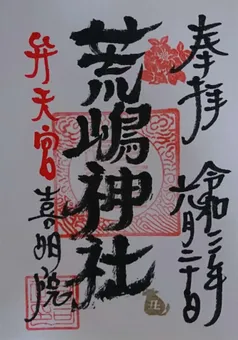 奉拝
令和三年
六月二十日
荒嶋神社
弁天宮
喜明院